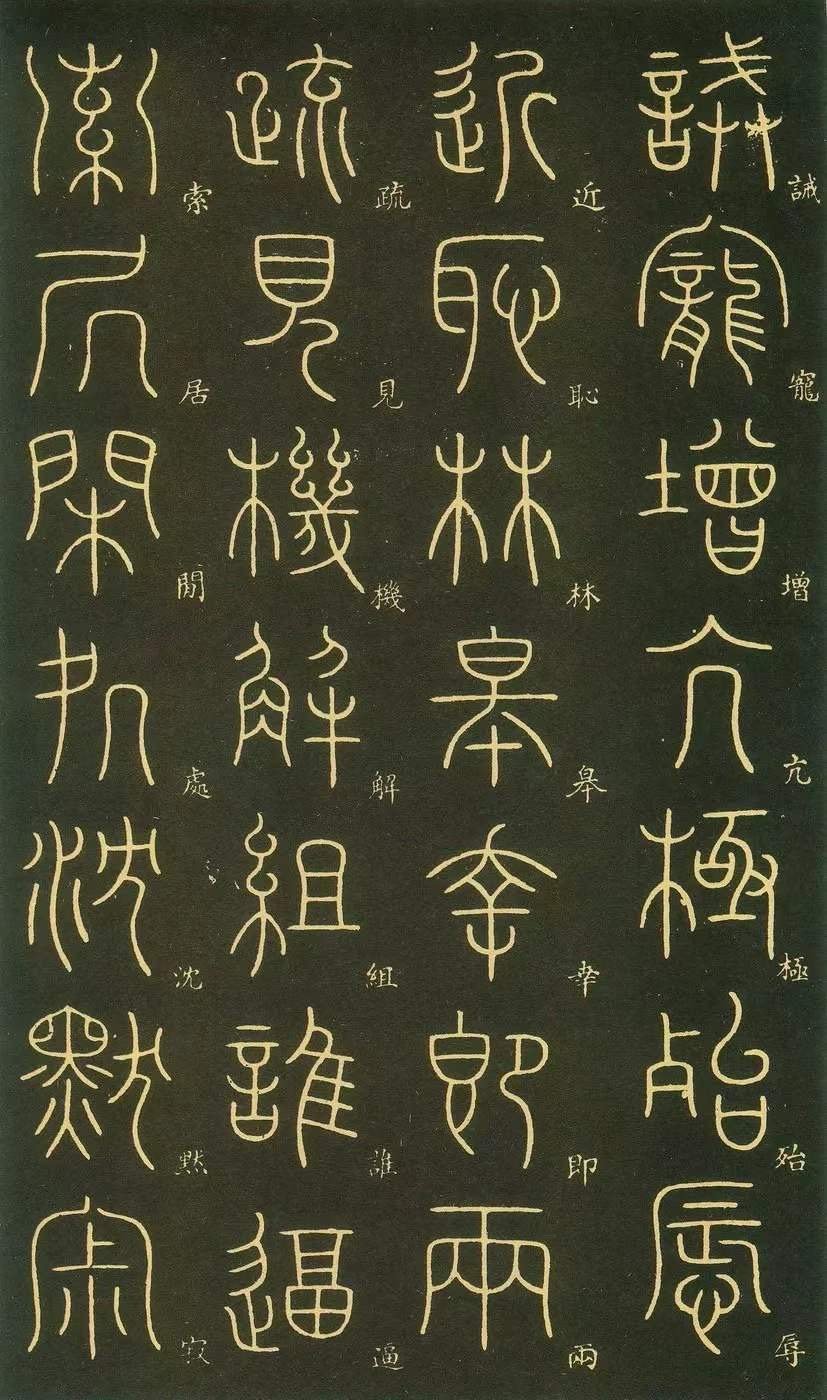 誡寵增亢極殆辱
近恥林皋幸即兩
疏見機解組誰逼
索居閒處沈默寂